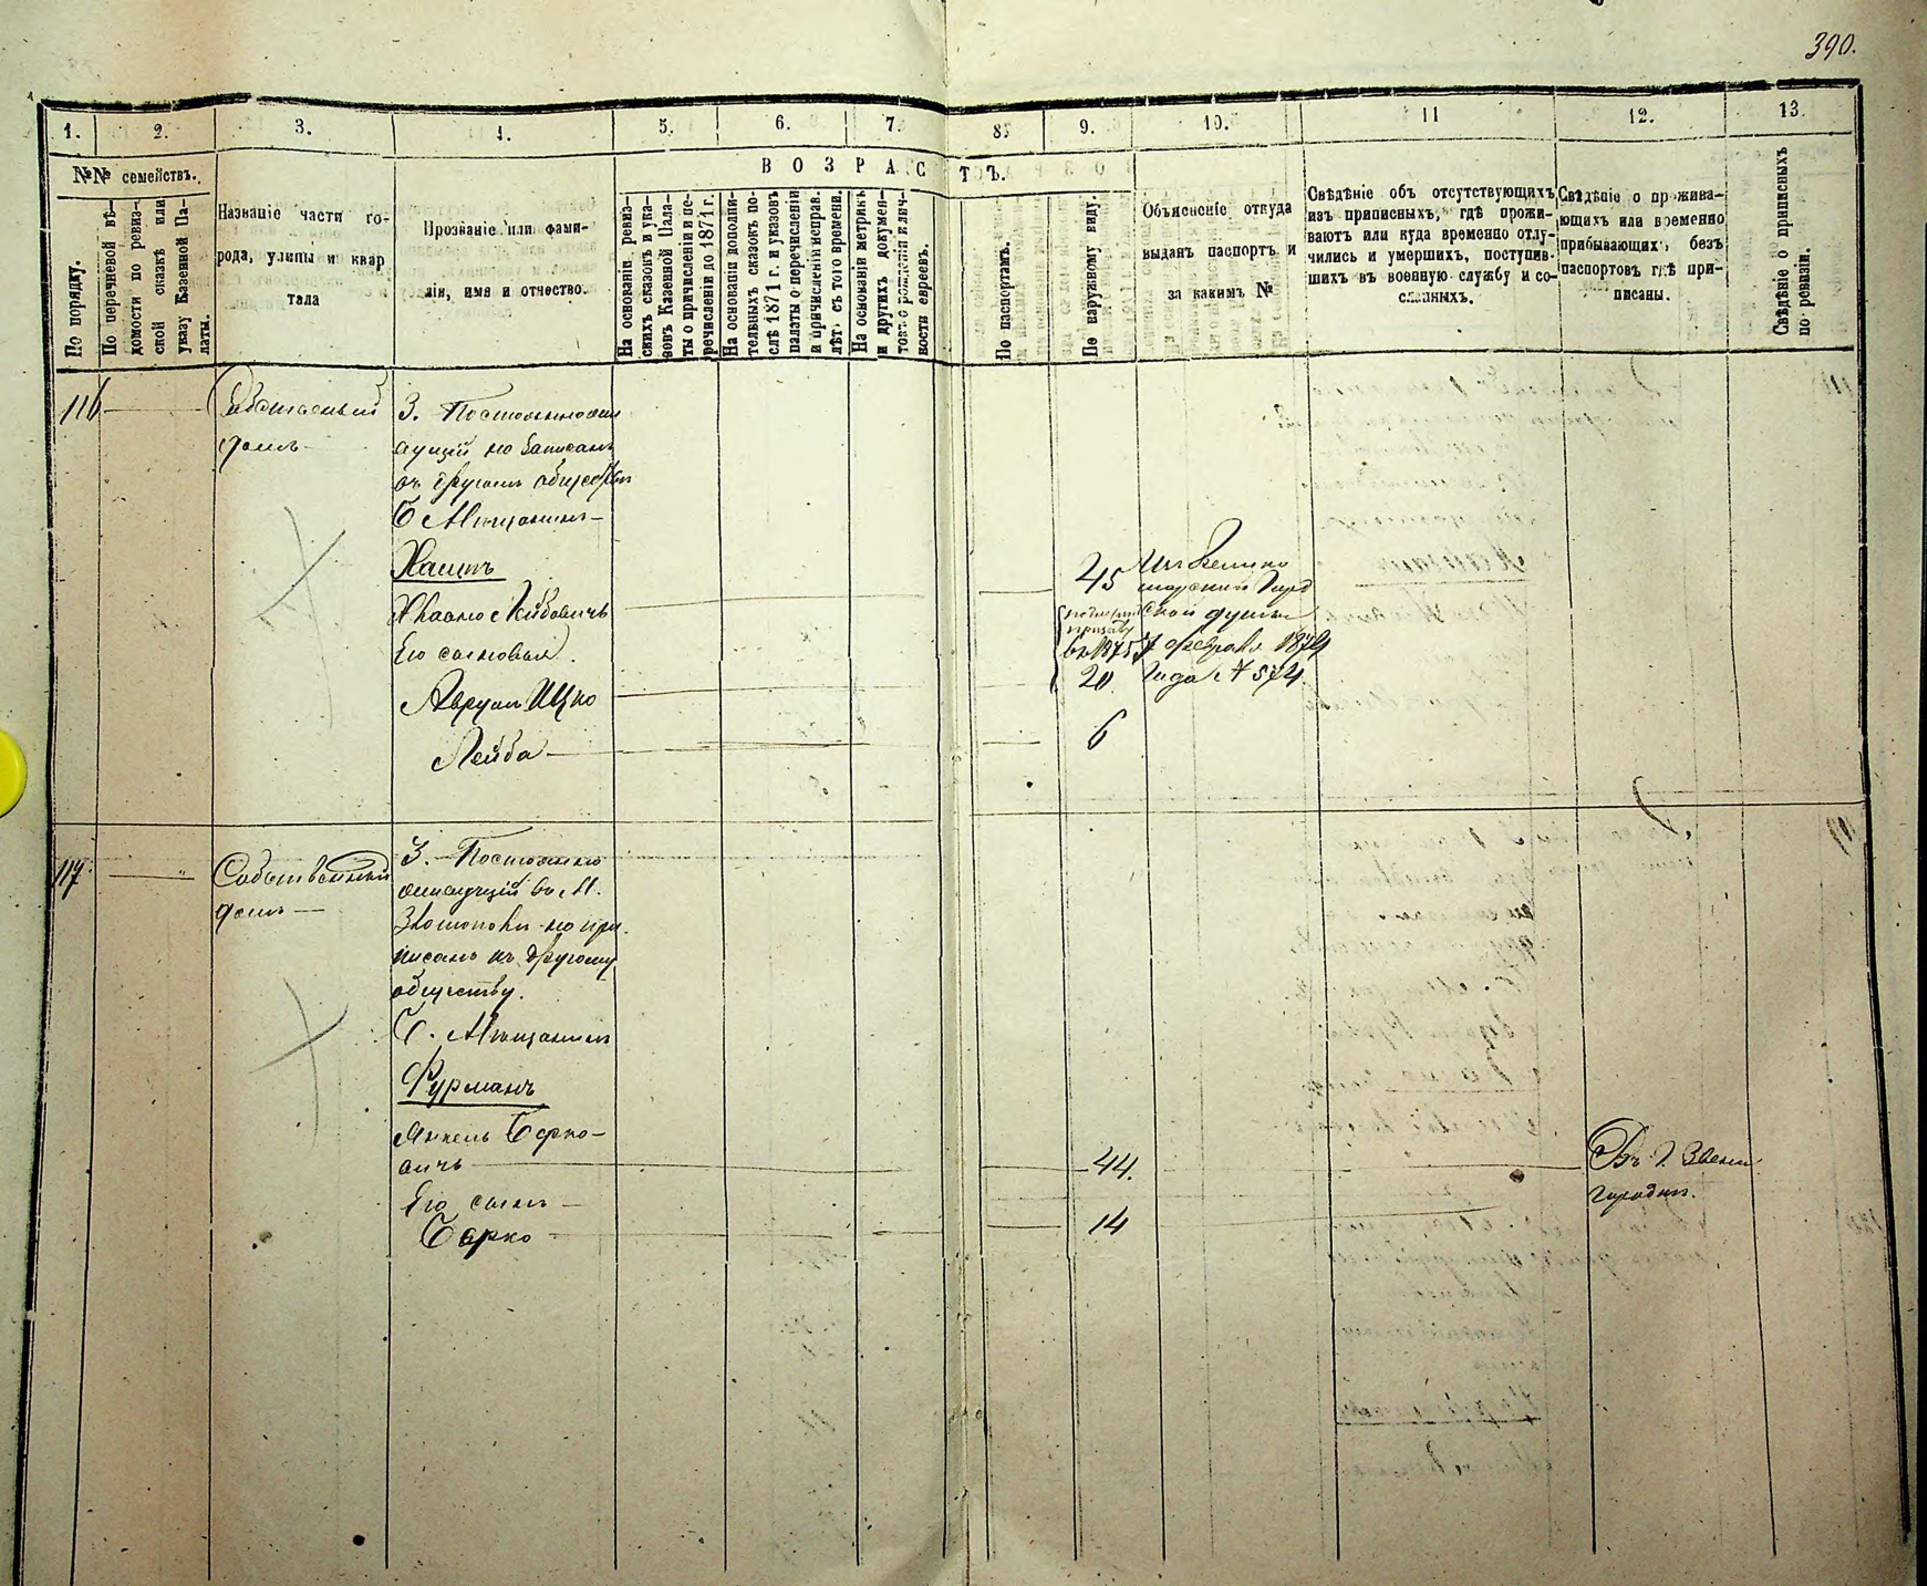 390.
1.
2.
3.
4.
5.
6.
7.
8.
9.
10.
11
12.
13.
№№ семействъ.
ВОЗРАСТЪ.
По порядку.
По перечневой вѣ-
домости по ревиз-
ской сказкѣ или
указу Казенной Па-
латы.
Названіе части го-
рода, улицы и квар
тала
Прозваніе или фами-
лія, имя и отчество.
На основаніи ревиз-
скихъ сказокъ и ука-
зовъ Казенной Пала-
ты о причисленіи и пе-
речисленіи до 1871 г.
На основаніи дополни-
тельныхъ сказокъ по-
слѣ 1871 г. и указовъ
палаты о перечисленіи
и причисленіи исправ.
лѣт. съ того времени.
На основаніи метрикъ
и другихъ докумен-
товъ о рожденіи и лич-
ности евреевъ.
По паспортамъ.
По наружному виду.
Объясненіе откуда
выданъ паспортъ и
за какимъ №
Свѣдѣніе объ отсутствующихъ
изъ приписныхъ, гдѣ прожи-
ваютъ или куда временно отлу-
чились и умершихъ, поступив-
шихъ въ военную службу и со-
сланныхъ.
Свѣдѣніе о прожива-
ющихъ или временно
прибывающихъ, безъ
паспортовъ гдѣ при-
писаны.
Свѣдѣніе о приписныхъ
по ревизіи.
116
домъ
3.
но записанъ
въ другомъ обществѣ
Б Мѣщанинъ
Лейбовичъ
Его сыновья.
Аврумъ Ицко
Лейба
45
въ 1875
20
6
думы
7 февраля 1874
года № 574.
117.
Собственный
домъ
3. Постоянно
живущій въ М.
Златополѣ но при
писанъ къ другому
обществу.
Б. Мѣщанинъ
Фурманъ
Янкель Берко-
вичъ
Его сынъ
Берко
44.
14
Въ г. Звени
городкѣ.